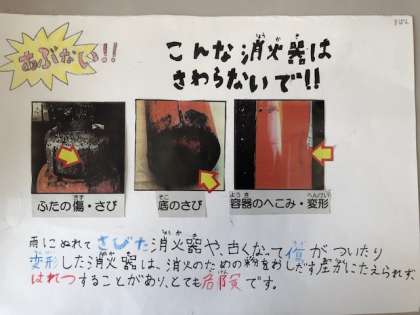 あぶない!!
こんな消火器は
さわらないで!!
ふたの傷・さび
底のさび
容器のへこみ・変形
雨にぬれてさびた消火器や、古くなって傷がついたり
変形した消火器は、消火のための粉をおしだす圧力にたえられず、
はれつすることがあり、とても危険です。